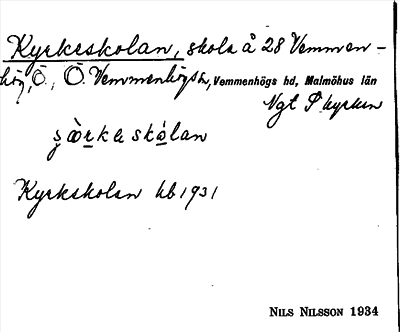 Kyrkeskolan, skola å 28 Vemmen-
hög, Ö., Ö. Vemmenhögs h, Vemmenhögs hd, Malmöhus län
Vgl kyrkan
ʂörke skólan
Kyrkskolan hb 1931
NILS NILSSON 1934